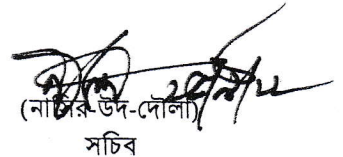 (নাসির-উদ-দৌলা)
সচিব